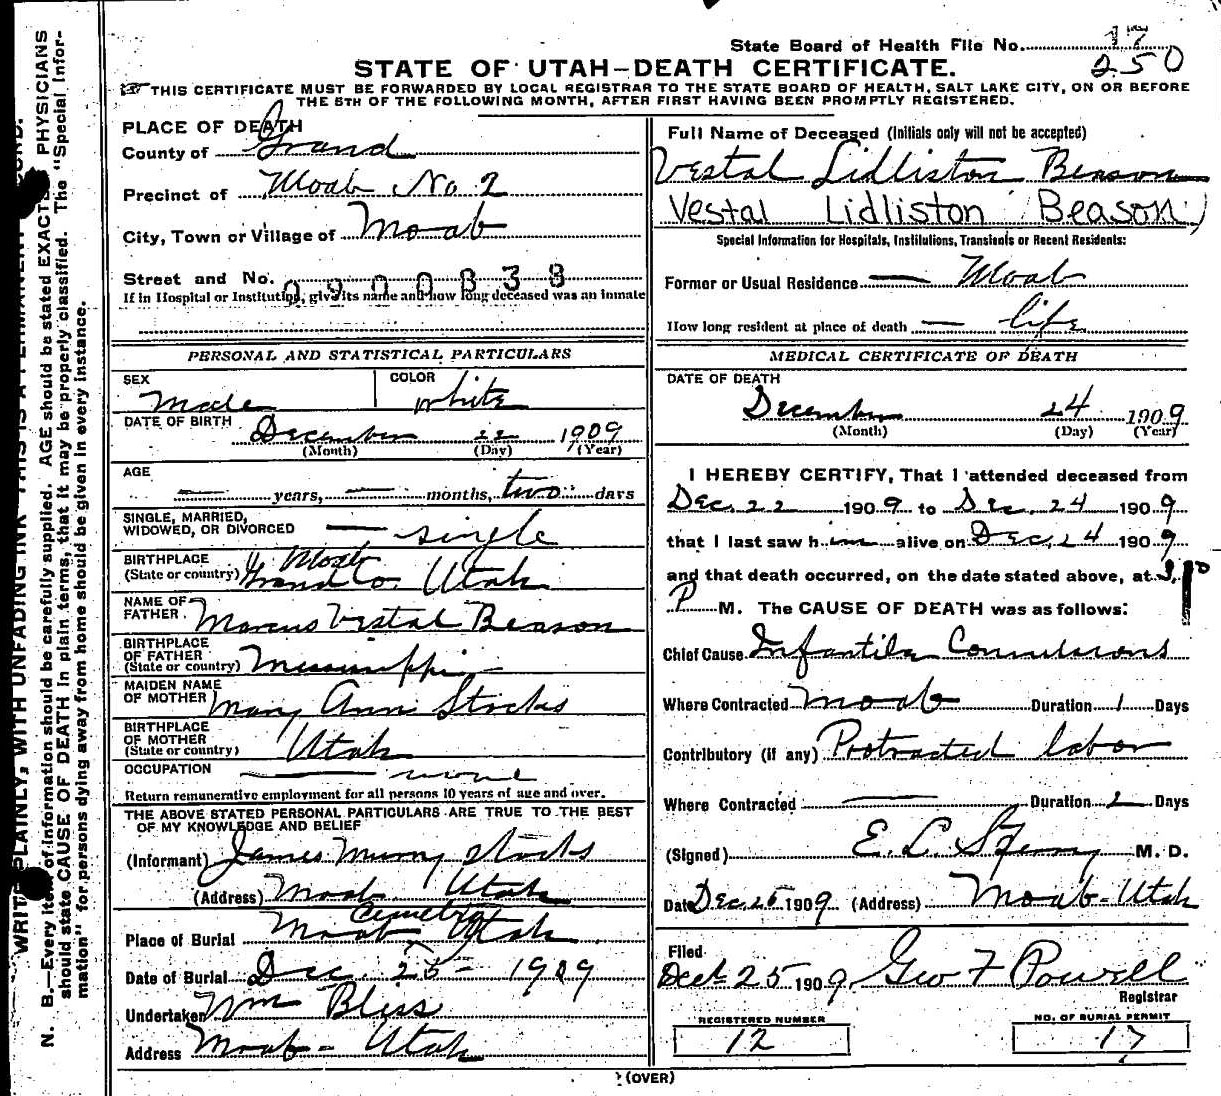 State Board of Health File No. 17
250
STATE OF UTAH—DEATH CERTIFICATE.
THIS CERTIFICATE MUST BE FORWARDED BY LOCAL REGISTRAR TO THE STATE BOARD OF HEALTH, SALT LAKE CITY, ON OR BEFORE
THE 5TH OF THE FOLLOWING MONTH, AFTER FIRST HAVING BEEN PROMPTLY REGISTERED.
PLACE OF DEATH
County of Grand
Precinct of Moab No 2
City, Town or Village of Moab
Street and No.
0900838
If in Hospital or Institution, give its name and how long deceased was an inmate
PERSONAL AND STATISTICAL PARTICULARS
SEX Male COLOR white
DATE OF BIRTH December 22 1909
(Month) (Day) (Year)
AGE
— years, — months, two days
SINGLE, MARRIED,
WIDOWED, OR DIVORCED — single
BIRTHPLACE Moab
(State or country) Grand Co. Utah
NAME OF
FATHER Marcus Vestal Beason
BIRTHPLACE
OF FATHER
(State or country) Mississippi
MAIDEN NAME
OF MOTHER Mary Ann Stocks
BIRTHPLACE
OF MOTHER
(State or country) Utah
OCCUPATION — none
Return remunerative employment for all persons 10 years of age and over.
THE ABOVE STATED PERSONAL PARTICULARS ARE TRUE TO THE BEST
OF MY KNOWLEDGE AND BELIEF
(Informant) James Stocks
(Address) Moab Utah
Cemetery
Place of Burial Moab Utah
Date of Burial Dec. 25 - 1909
Undertaker Wm Bliss
Address Moab - Utah
Full Name of Deceased (Initials only will not be accepted)
Vestal Lidliston Beason
Vestal Lidliston Beason)
Special Information for Hospitals, Institutions, Transients or Recent Residents:
Former or Usual Residence — Moab
How long resident at place of death — life
MEDICAL CERTIFICATE OF DEATH
DATE OF DEATH
December 24 1909
(Month) (Day) (Year)
I HEREBY CERTIFY, That I attended deceased from
Dec. 22 1909 to Dec. 24 1909
that I last saw him alive on Dec. 24 1909
and that death occurred, on the date stated above, at
P M. The CAUSE OF DEATH was as follows:
Chief Cause Infantile Convulsions
Where Contracted Moab Duration 1 Days
Contributory (if any) Protracted labor
Where Contracted — Duration 2 Days
(Signed) E. L. M. D.
Date Dec. 25 1909 (Address) Moab - Utah
Filed
Dec 25 1909 Geo F Powell
Registrar
REGISTERED NUMBER
12
NO. OF BURIAL PERMIT
17
(OVER)
WRITE PLAINLY, WITH UNFADING INK THIS IS A PERMANENT
N. B.—Every item of information should be carefully supplied. AGE should be stated EXACTLY. PHYSICIANS
should state CAUSE OF DEATH in plain terms, that it may be properly classified. The "Special Infor-
mation" for persons dying away from home should be given in every instance.